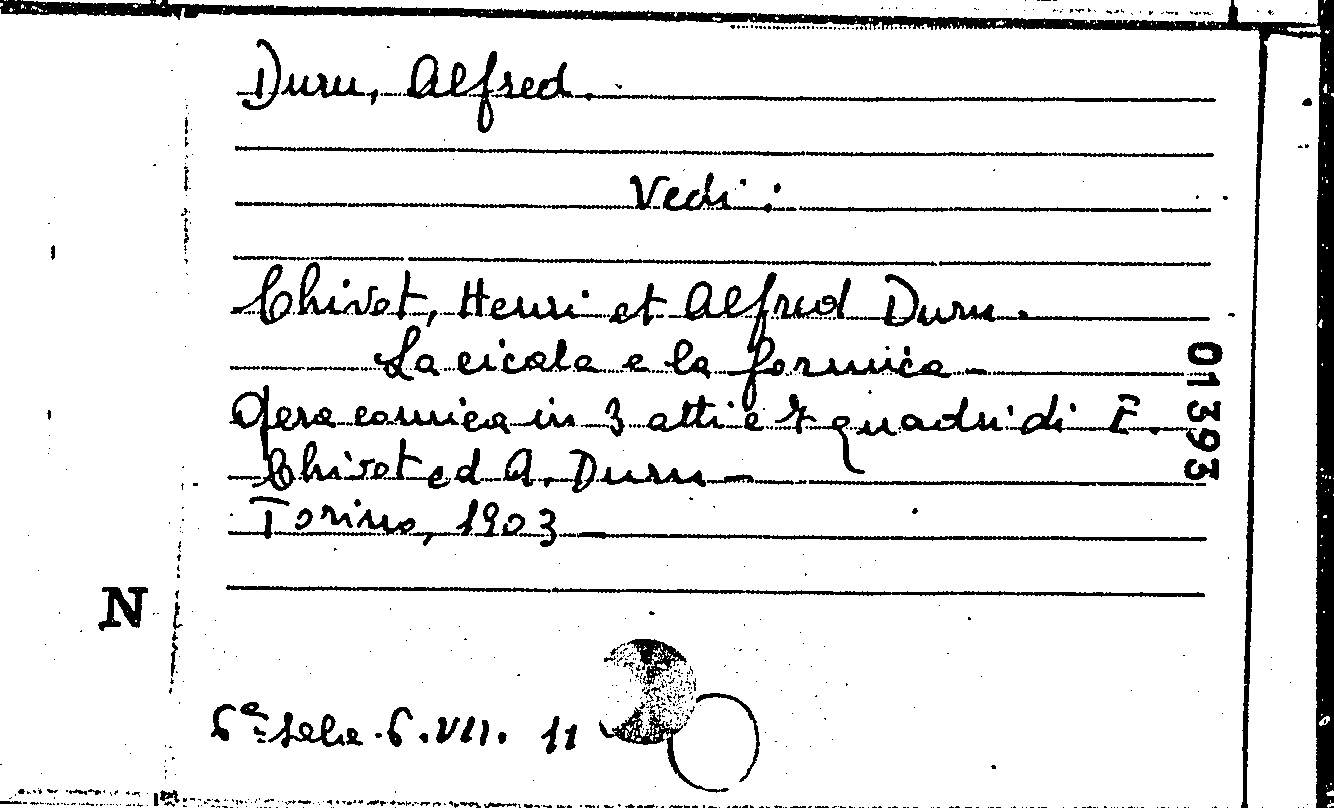 Duru, Alfred.
Vedi:
Chivot, Henri et Alfred Duru.
La cicala e la formica -
Opera comica in 3 atti e 7 quadri di E.
Chivot ed A. Duru -
Torino, 1903
01393
N
6ª Sala. 6. VII. 11